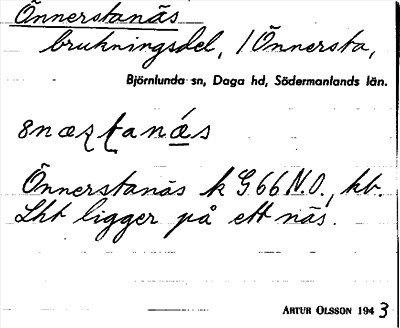 Önnerstanäs
brukningsdel, / Önnersta,
Björnlunda sn, Daga hd, Södermanlands län.
Önnerstanäs k G66 N.O., kb.
Lht ligger på ett näs.
ARTUR OLSSON 1943